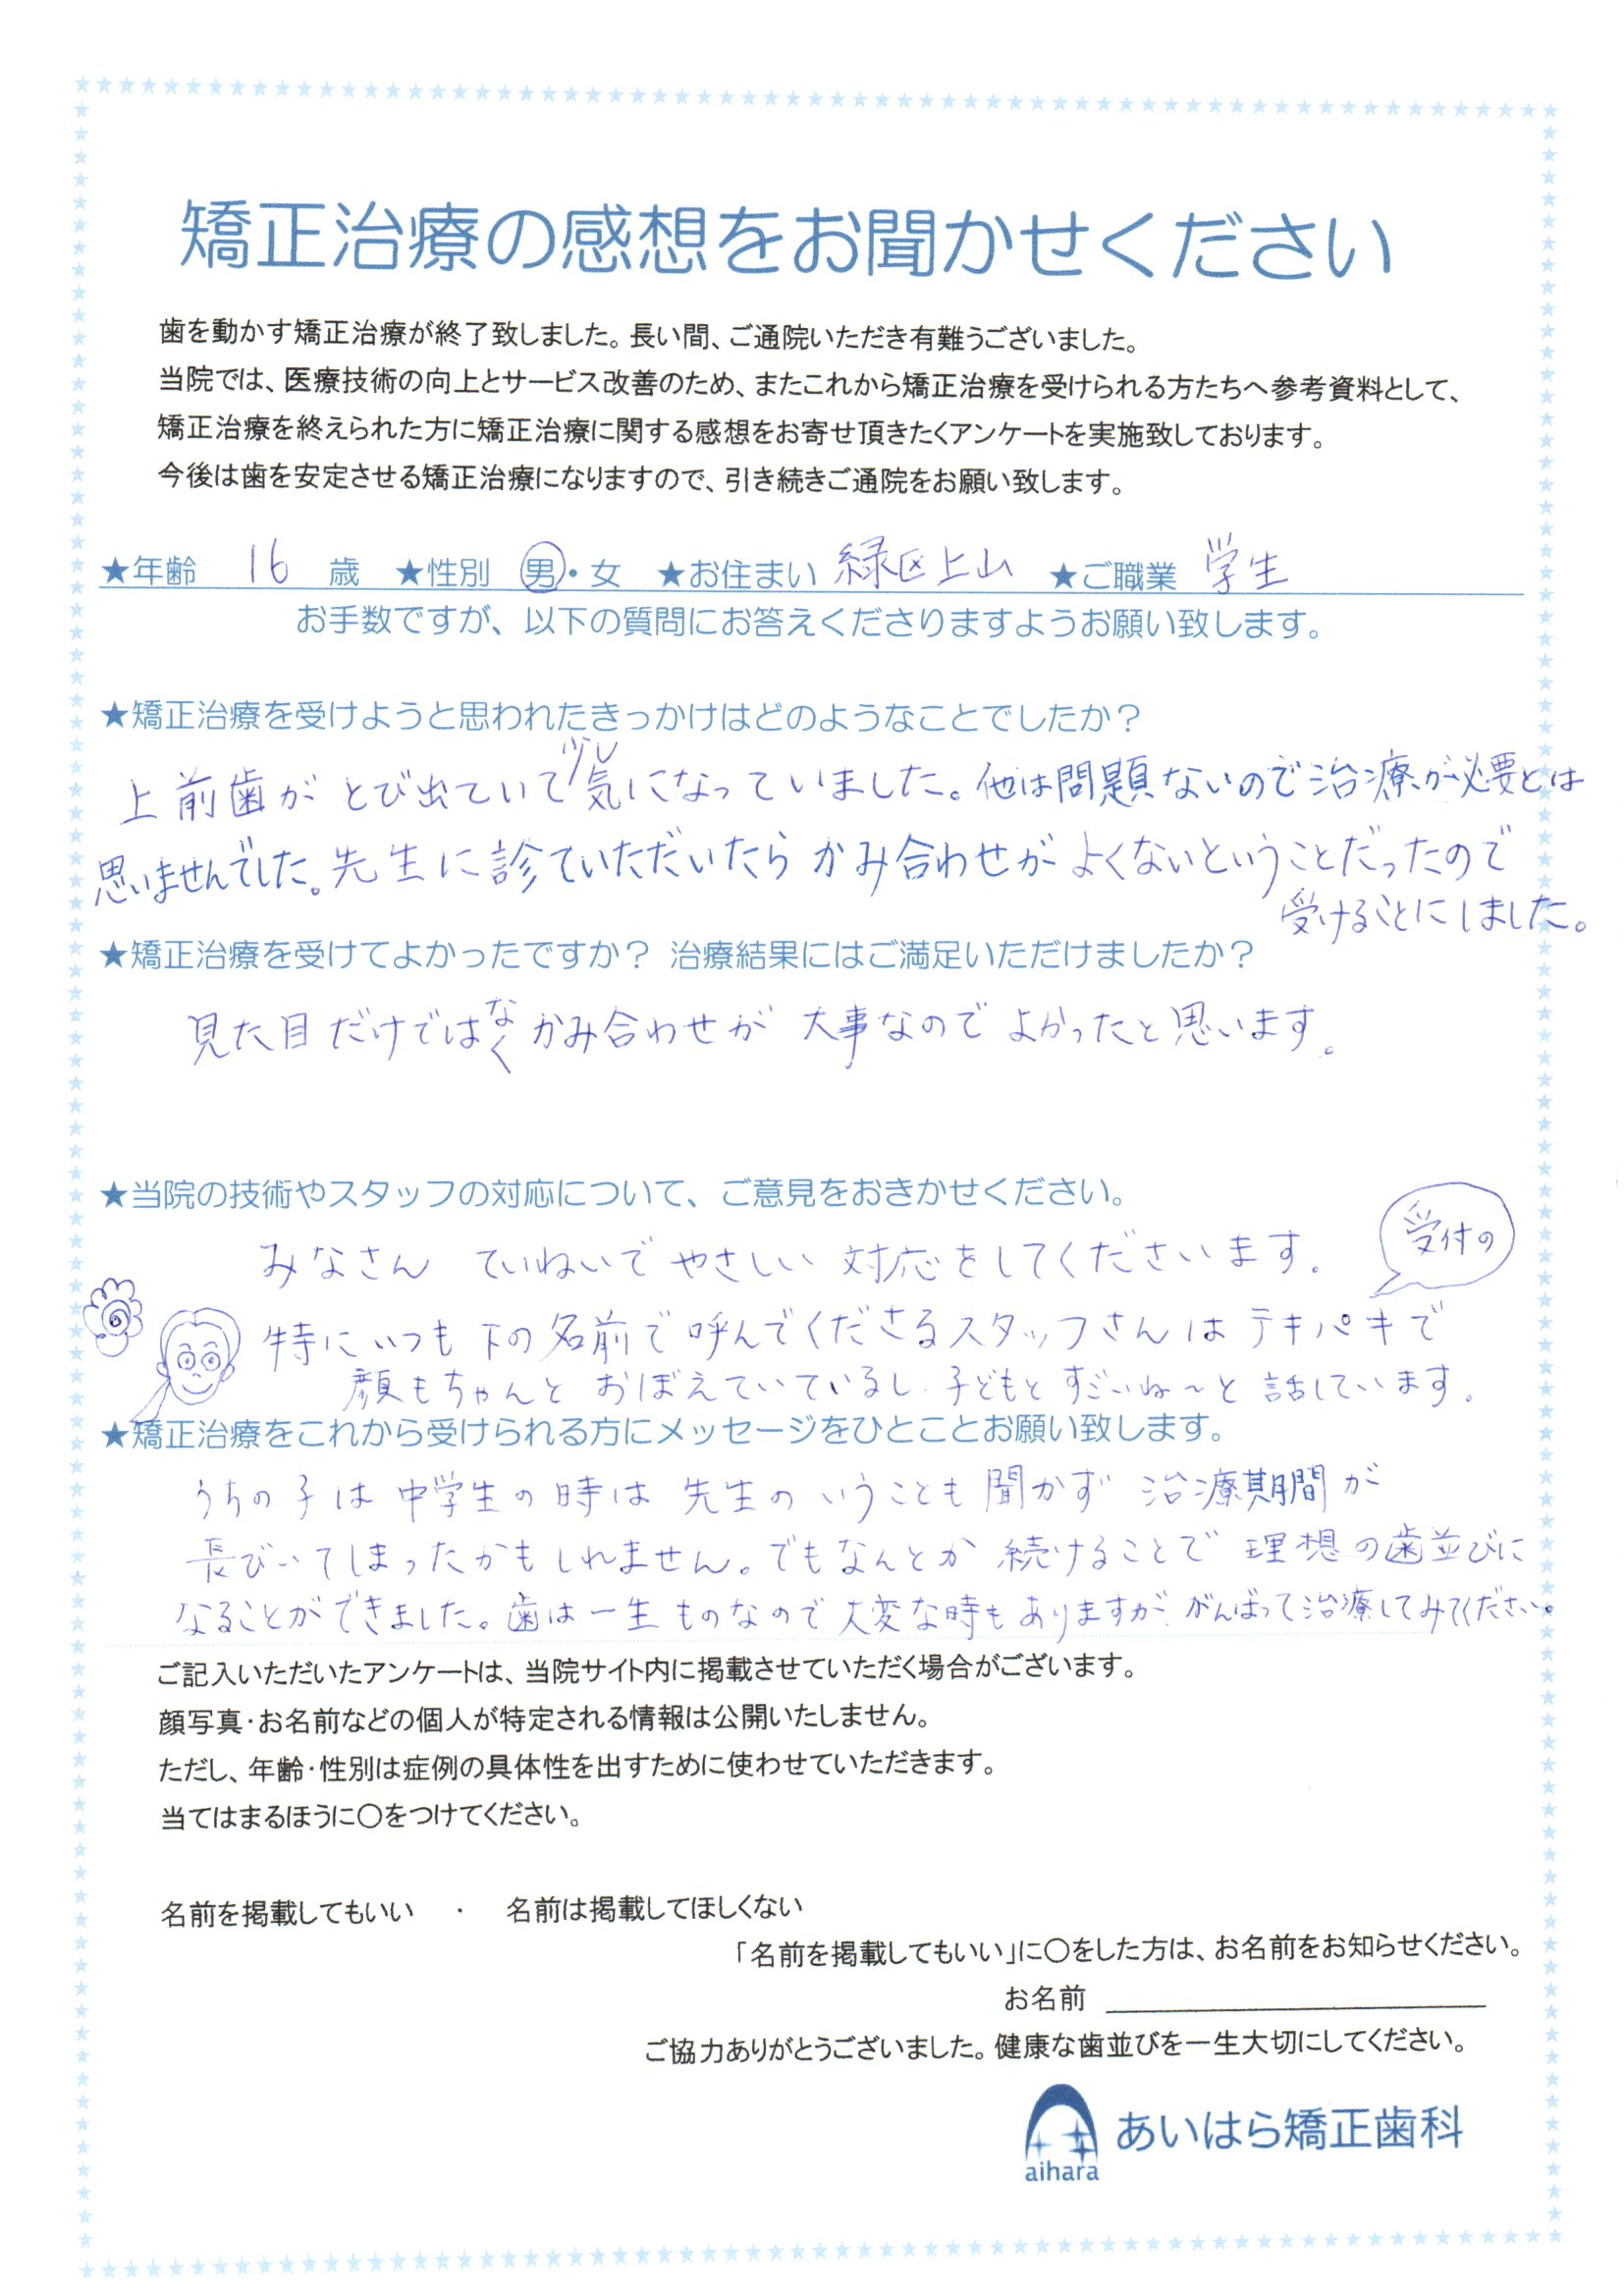 矯正治療の感想をお聞かせください
歯を動かす矯正治療が終了致しました。長い間、ご通院いただき有難うございました。
当院では、医療技術の向上とサービス改善のため、またこれから矯正治療を受けられる方たちへ参考資料として、
矯正治療を終えられた方に矯正治療に関する感想をお寄せ頂きたくアンケートを実施致しております。
今後は歯を安定させる矯正治療になりますので、引き続きご通院をお願い致します。
★年齢 16 歳 ★性別 男・女 ★お住まい 緑区上山 ★ご職業 学生
お手数ですが、以下の質問にお答えくださりますようお願い致します。
★矯正治療を受けようと思われたきっかけはどのようなことでしたか？
上前歯がとび出ていて少し気になっていました。他は問題ないので治療が必要とは
思いませんでした。先生に診ていただいたらかみ合わせがよくないということだったので
受けることにしました。
★矯正治療を受けてよかったですか？ 治療結果にはご満足いただけましたか？
見た目だけではなくかみ合わせが大事なのでよかったと思います。
★当院の技術やスタッフの対応について、ご意見をおきかせください。
みなさん ていねいでやさしい対応をしてくださいます。
受付の
特にいつも下の名前で呼んでくださるスタッフさんはテキパキで
顔もちゃんとおぼえていているし、子どもとすごいね〜と話しています。
★矯正治療をこれから受けられる方にメッセージをひとことお願い致します。
うちの子は中学生の時は先生のいうことも聞かず治療期間が
長びいてしまったかもしれません。でもなんとか続けることで理想の歯並びに
なることができました。歯は一生ものなので大変な時もありますが、がんばって治療してみてください。
ご記入いただいたアンケートは、当院サイト内に掲載させていただく場合がございます。
顔写真・お名前などの個人が特定される情報は公開いたしません。
ただし、年齢・性別は症例の具体性を出すために使わせていただきます。
当てはまるほうに〇をつけてください。
名前を掲載してもいい ・ 名前は掲載してほしくない
「名前を掲載してもいい」に〇をした方は、お名前をお知らせください。
お名前
ご協力ありがとうございました。健康な歯並びを一生大切にしてください。
aihara あいはら矯正歯科